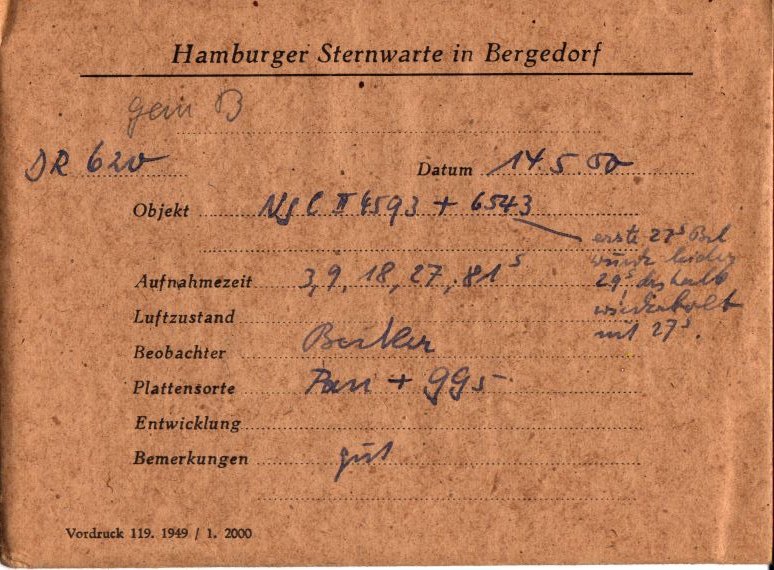 Hamburger Sternwarte in Bergedorf
gem B
DR 620
Datum 14.5.50
Objekt NGC II 4593 + 6543
Aufnahmezeit 3, 9, 18, 27, 81ˢ
Luftzustand
Beobachter
Plattensorte Pan + 995
Entwicklung
Bemerkungen gut
erste 27ˢ Bel
wurde leider
29ˢ, deshalb
wiederholt
mit 27ˢ.
Vordruck 119. 1949 / 1. 2000